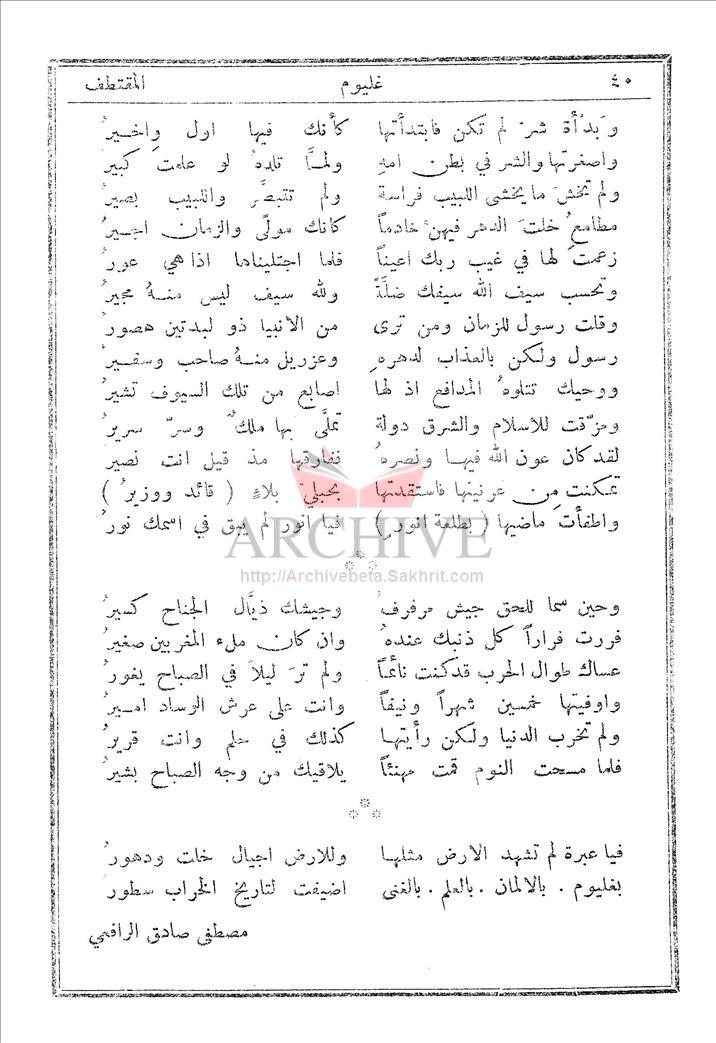 ٤٠ غليوم المقتطف
وبدأة شرّ لم تكن فابتدأتها كأنك فيها اول واخيرُ
واصغرتها والشر في بطن امهِ ولمَّا تلدهُ لو علمت كبيرُ
ولم تخشَ ما يخشى اللبيب فراسة ولم تتبصَّر واللبيب بصيرُ
مطامعُ خلتَ الدهر فيهنَّ خادماً كانك مولًى والزمان اجيرُ
زعمتَ لها في غيب ربك اعيناً فلما اجتليناها اذا هي عورُ
وتحسب سيف الله سيفك ضلَّةً ولله سيف ليس منهُ مجيرُ
وقلت رسول للزمان ومن ترى من الانبيا ذو لبدتين هصورُ
رسول ولكن بالعذاب لدهرهِ وعزريل منهُ صاحب وسفيرُ
ووحيك تتلوهُ المدافع اذ لها اصابع من تلك السيوف تشيرُ
ومزّقت للاسلام والشرق دولة تملَّى بها ملكٌ وسرّ سريرُ
لقد كان عون الله فيها ونصرهُ ففارقها مذ قيل انت نصيرُ
تمكنت من عرنينها فاستقدتها بحبلي بلاءٍ ( قائد ووزيرُ )
واطفأت ماضيها ( بطلعة انور ) فيا انور لم يبق في اسمك نورُ
وحين سما للحق جيش مرفرف وجيشك ذيَّال الجناح كسيرُ
فررت فراراً كل ذنبك عندهُ وان كان ملء المغربين صغيرُ
عساك طوال الحرب قد كنت نائماً ولم ترَ ليلاً في الصباح يغورُ
واوفيتها خمسين شهراً ونيفاً وانت على عرش الوساد اميرُ
ولم تخرب الدنيا ولكن رأيتها كذلك في حلم وانت قريرُ
فلما مسحت النوم قمت مهنئاً يلاقيك من وجه الصباح بشيرُ
فيا عبرة لم تشهد الارض مثلها وللارض اجيال خلت ودهورُ
بغليوم . بالالمان . بالعلم . بالغنى اضيفت لتاريخ الخراب سطورُ
مصطفى صادق الرافعي
ARCHIVE
http://Archivebeta.Sakhrit.com